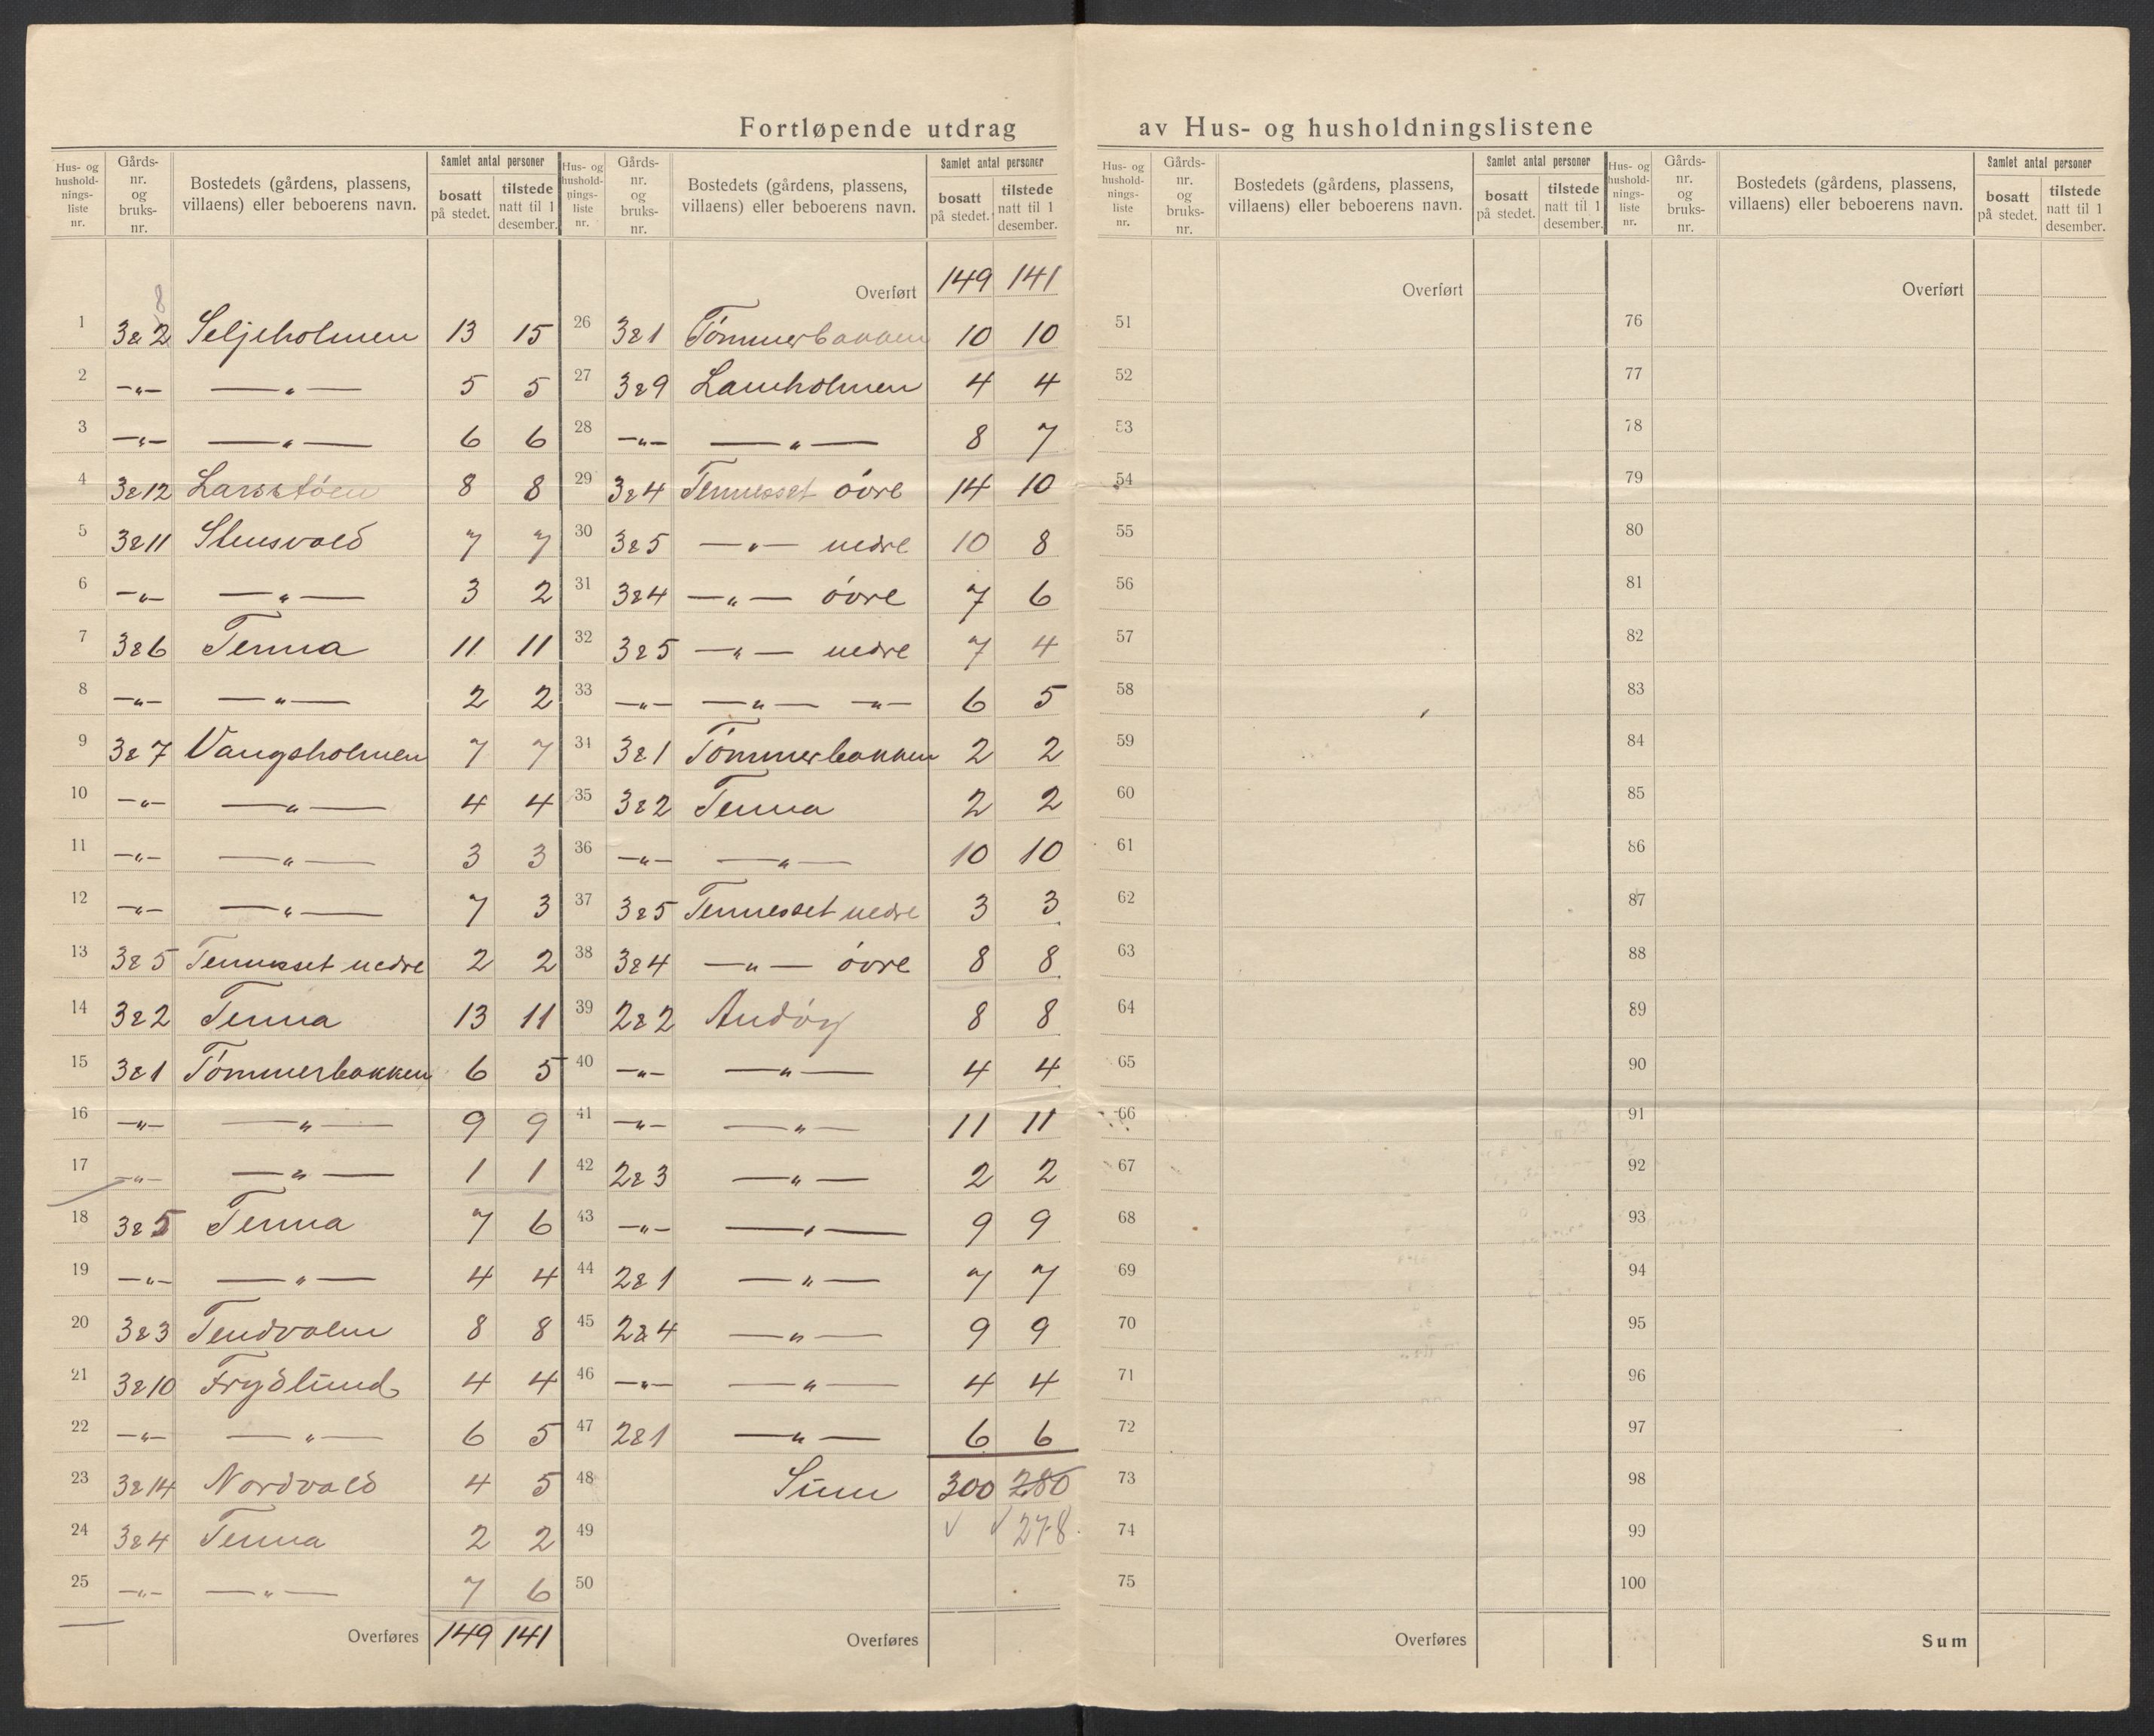 Fortløpende utdrag av Hus- og husholdningslistene
Hus- og hushold-nings-liste nr. Gårds-nr. og bruks-nr. Bostedets (gårdens, plassens, villaens) eller beboerens navn. Samlet antal personer bosatt på stedet. tilstede natt til 1 desember.
8
1 3 & 2 Seljeholmen 13 15
2 —„— —„— 5 5
3 —„— —„— 6 6
4 3 & 12 Larsstøen 8 8
5 3 & 11 Stensvold 7 7
6 —„— —„— 3 2
7 3 & 6 Tenna 11 11
8 —„— —„— 2 2
9 3 & 7 Vangsholmen 7 7
10 —„— —„— 4 4
11 —„— —„— 3 3
12 —„— —„— 7 3
13 3 & 5 Tennesset nedre 2 2
14 3 & 2 Tenna 13 11
15 3 & 1 Tømmerbakken 6 5
16 —„— —„— 9 9
17 —„— —„— 1 1
18 3 & 5 Tenna 7 6
19 —„— —„— 4 4
20 3 & 3 Tendvalen 8 8
21 3 & 10 Frydlund 4 4
22 —„— —„— 6 5
23 3 & 14 Nordvold 4 5
24 3 & 4 Tenna 2 2
25 —„— —„— 7 6
Overføres 149 141
Hus- og hushold-nings-liste nr. Gårds-nr. og bruks-nr. Bostedets (gårdens, plassens, villaens) eller beboerens navn. Samlet antal personer bosatt på stedet. tilstede natt til 1 desember.
Overført 149 141
26 3 & 1 Tømmerbakken 10 10
27 3 & 9 Lamholmen 4 4
28 —„— —„— 8 7
29 3 & 4 Tennesset øvre 14 10
30 3 & 5 —„— nedre 10 8
31 3 & 4 —„— øvre 7 6
32 3 & 5 —„— nedre 7 4
33 —„— —„— —„— 6 5
34 3 & 1 Tømmerbakken 2 2
35 3 & 2 Tenna 2 2
36 —„— —„— 10 10
37 3 & 5 Tennesset nedre 3 3
38 3 & 4 —„— øvre 8 8
39 2 & 2 Andøy 8 8
40 —„— —„— 4 4
41 —„— —„— 11 11
42 2 & 3 —„— 2 2
43 —„— —„— 9 9
44 2 & 1 —„— 7 7
45 2 & 4 —„— 9 9
46 —„— —„— 4 4
47 2 & 1 —„— 6 6
48 Sum 300 280
49 √ √ 278
50
Overføres
Hus- og hushold-nings-liste nr. Gårds-nr. og bruks-nr. Bostedets (gårdens, plassens, villaens) eller beboerens navn. Samlet antal personer bosatt på stedet. tilstede natt til 1 desember.
Overført
51
52
53
54
55
56
57
58
59
60
61
62
63
64
65
66
67
68
69
70
71
72
73
74
75
Overføres
Hus- og hushold-nings-liste nr. Gårds-nr. og bruks-nr. Bostedets (gårdens, plassens, villaens) eller beboerens navn. Samlet antal personer bosatt på stedet. tilstede natt til 1 desember.
Overført
76
77
78
79
80
81
82
83
84
85
86
87
88
89
90
91
92
93
94
95
96
97
98
99
100
Sum